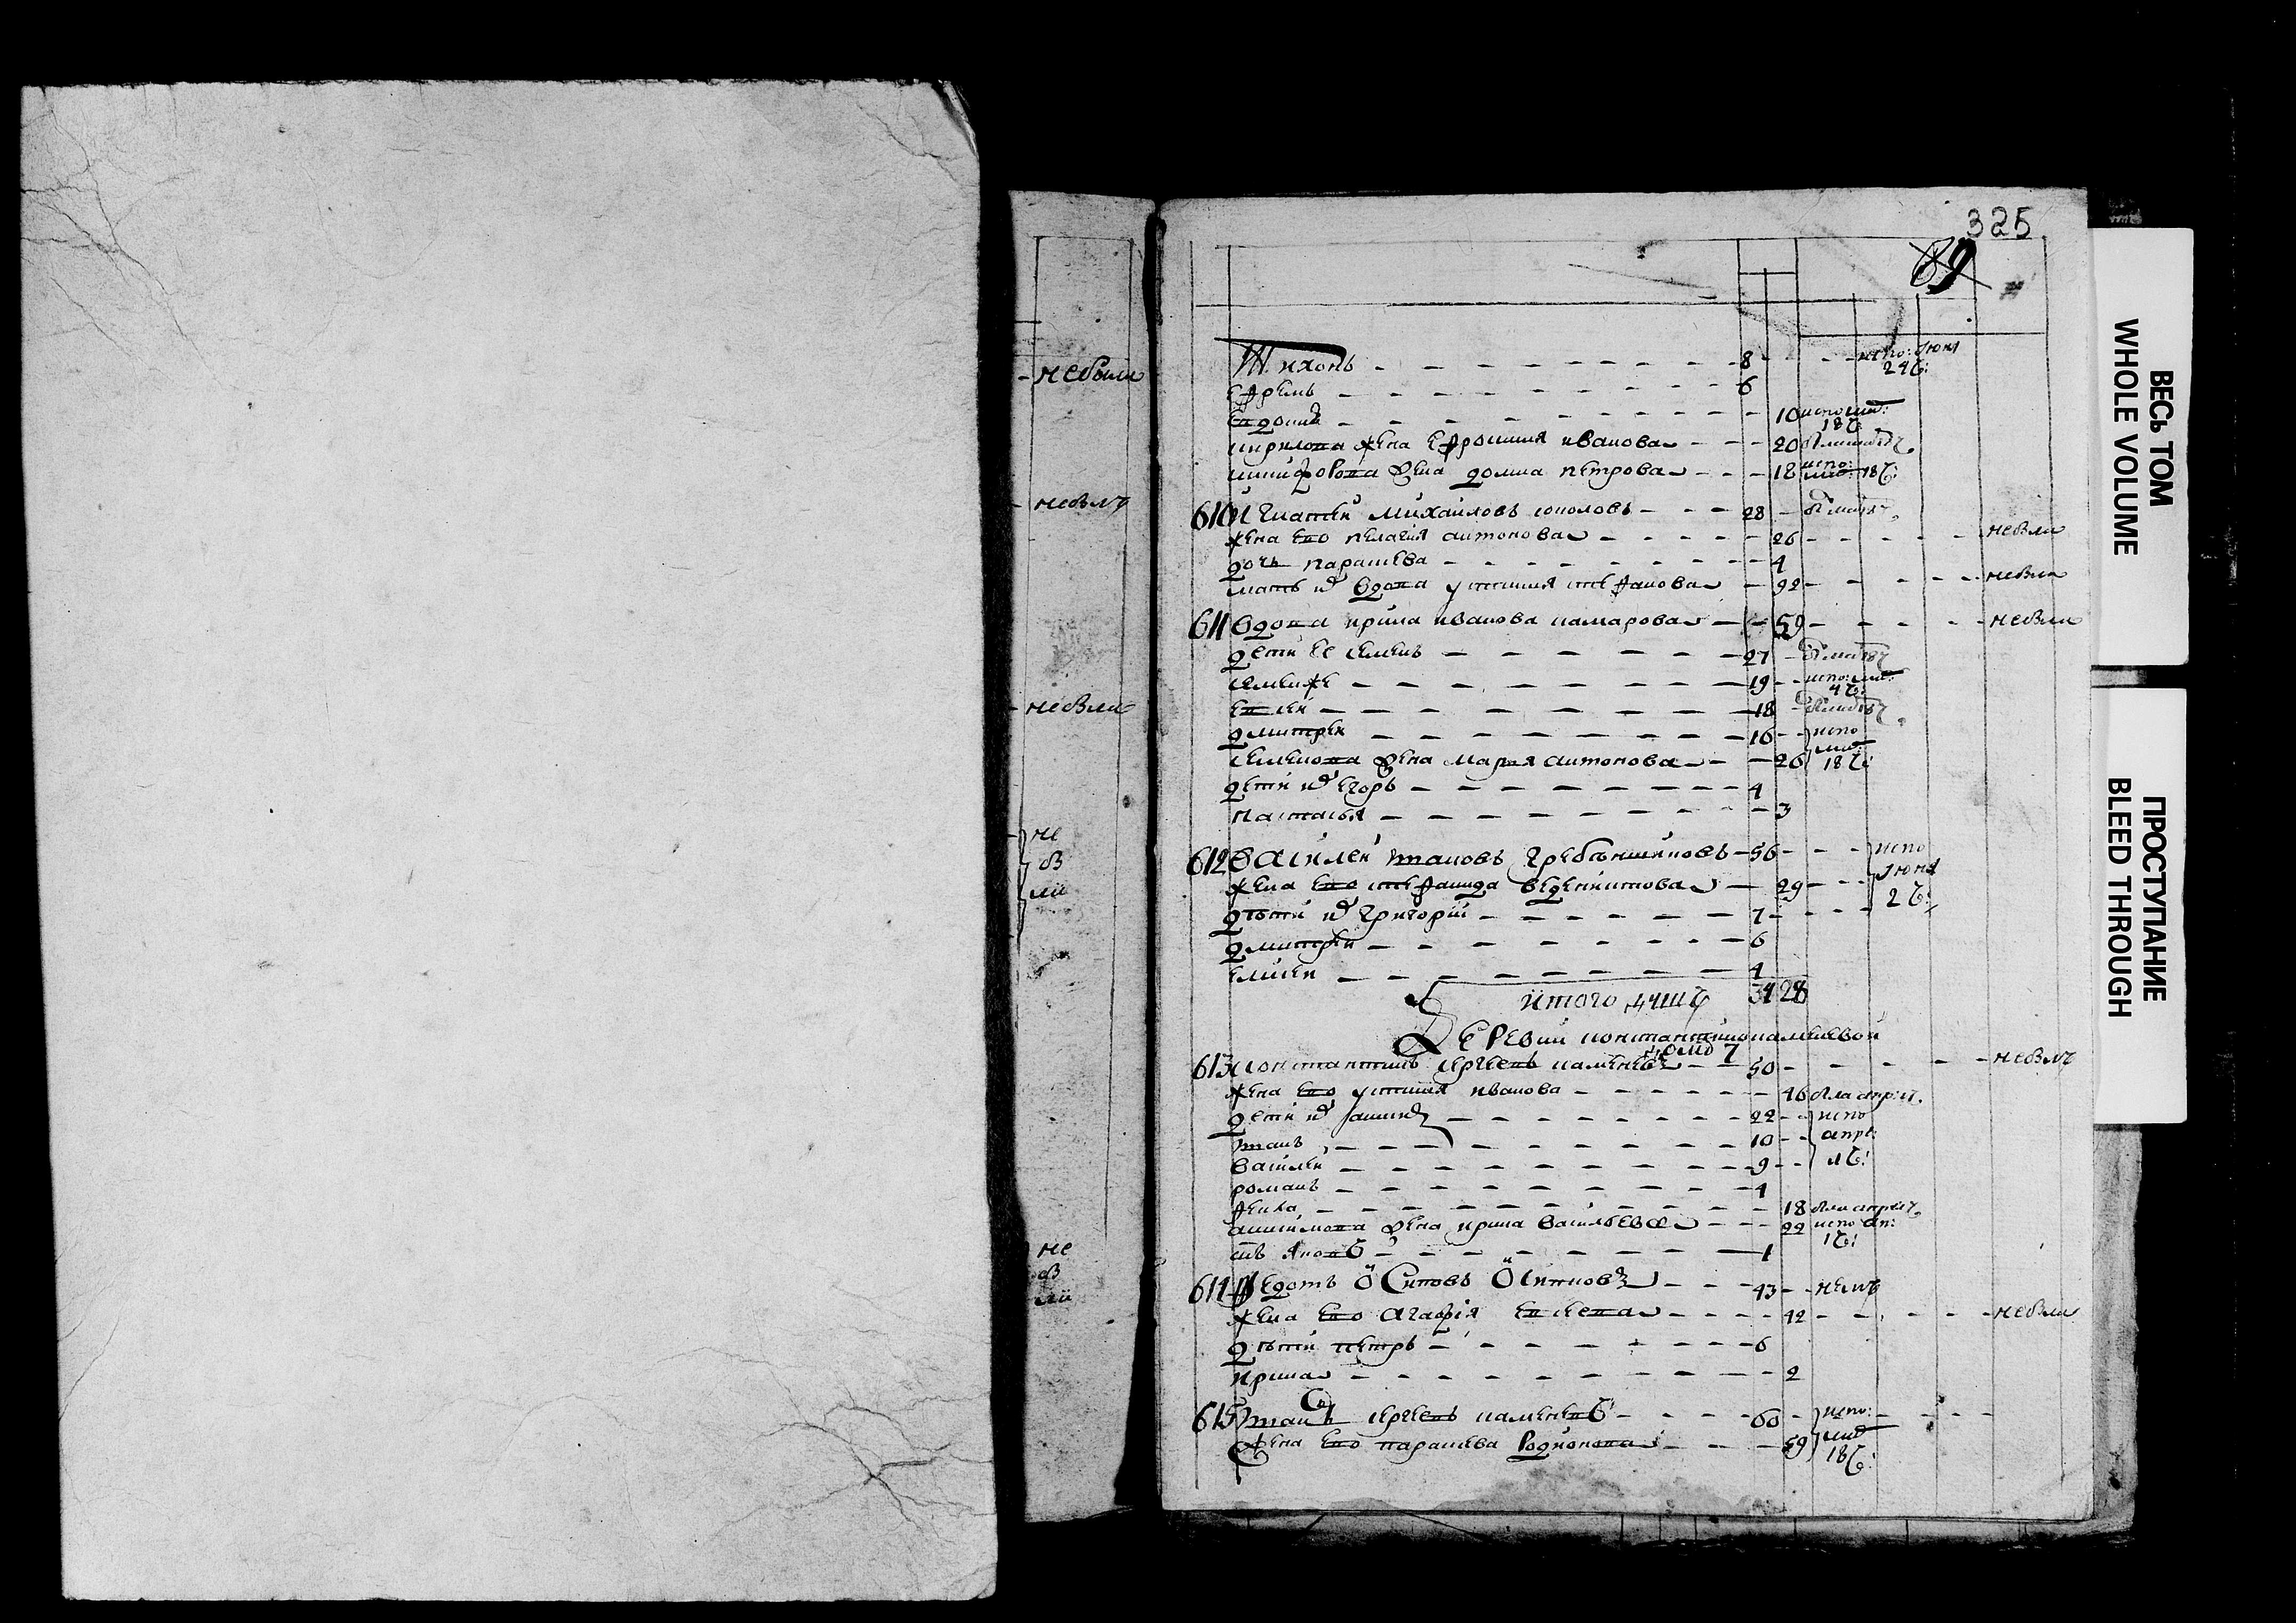 небыли
небылъ
небыли
не
бы
ли
не
бы
ли
325
89
Тихонъ 8 испо: июня 24 ч:
ефремъ 6
10 испо 18 ч:
кирилова жена ефросиния иванова 20
никифорова жена домна петрова 18 испо: 18 ч:
610 игнатей михаиловъ 28
жена ево пелагия антонова 26 небыли
дочь парасковья 4
мать их вдова устиния стефанова 92 небыли
611 вдова ирина иванова камарова 59 небыли
дети ее семенъ 27
семенже 19 испо: 4 ч:
евсей 18
дмитрей 16 испо
семенова жена марья антонова 26 18 ч:
дети их егоръ 4
настасья 3
612 василей ивановъ гребенщиковъ 56 испо
жена ево стефанида веденихтова 29 июня
дети их григорий 7 2 ч:
дмитрей 6
елисей 4
итого душъ 34 28
деревни константинокаменевой
домъ 7
613 константинъ сергеевъ каменевъ 50 небылъ
жена ево устиния иванова 46 была апр:
дети их 22 испо
иванъ 10 апре:
василей 9 1 ч:
романъ 4
фекла 18
жена ирина васильева 22 испо ап:
сынъ яковъ 1 1 ч:
614 федотъ осиповъ осиповъ 43
жена ево агафия евсеева 42 небыли
дети петръ 6
ирина 2
615 иванъ сергеевъ каменевъ 60 испо:
жена ево парасковья родионова 59 18 ч:
ВЕСЬ ТОМ
WHOLE VOLUME
ПРОСТУПАНИЕ
BLEED THROUGH